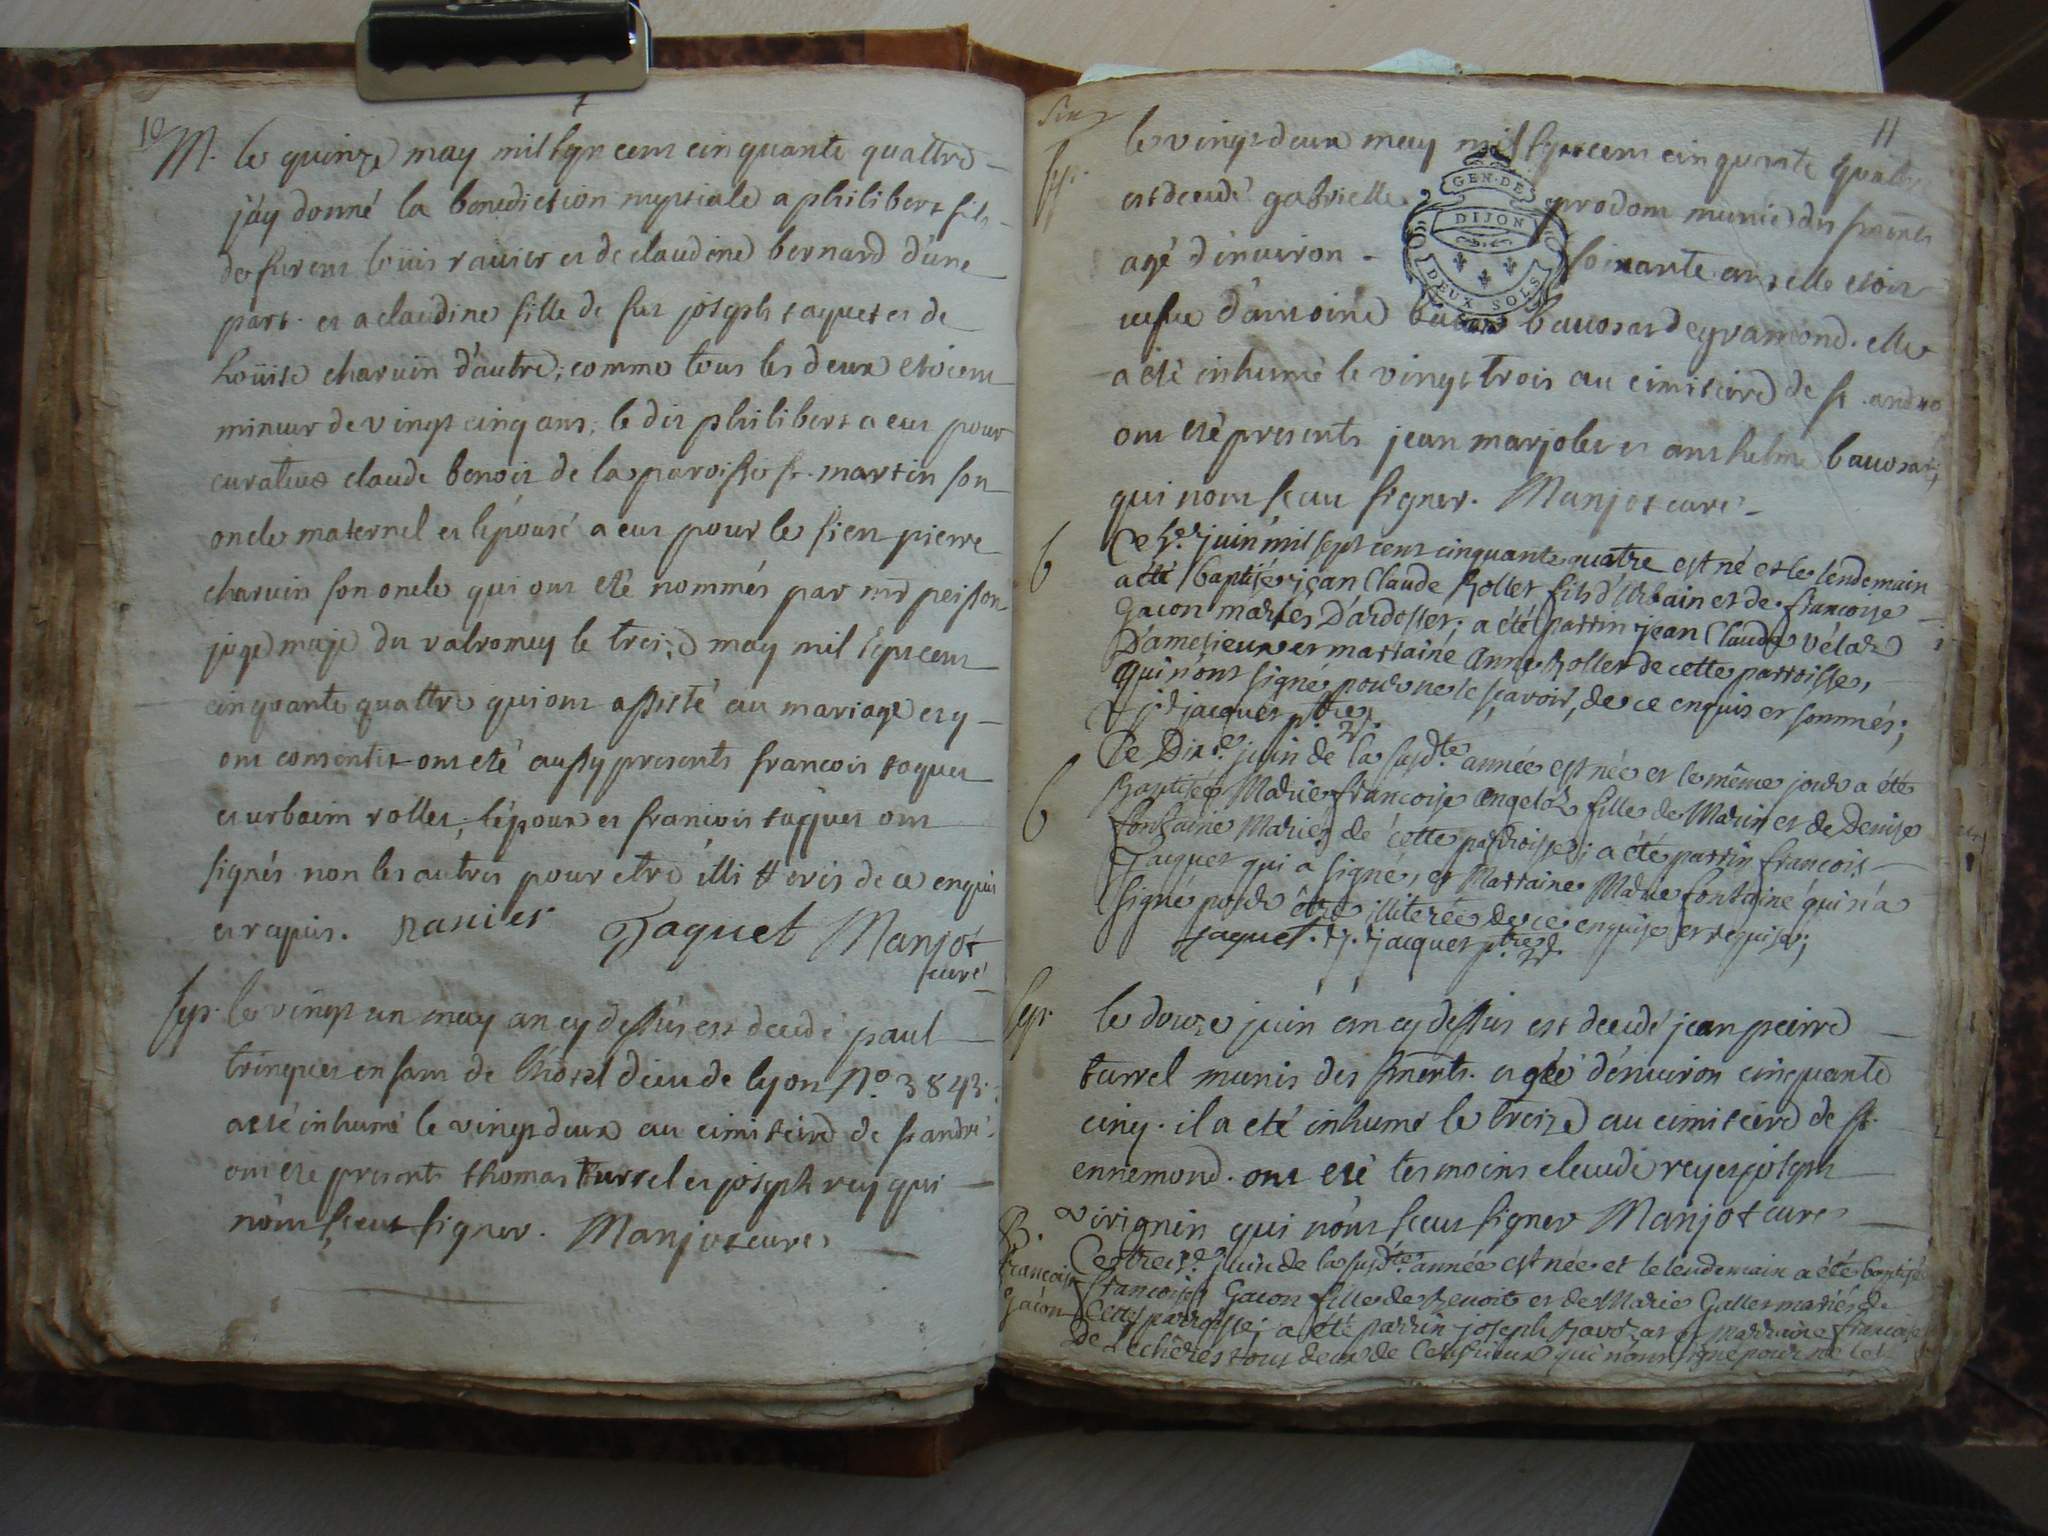 10
M. le quinze may mil sept cens cinquante quattre
j'ay donné la benediction nuptiale a philibert fils
de furent loüis ravier et de claudine bernard d'une
part. et a claudine fille de feu joseph taquet et de
loüise charvin d'autre; comme tous les deux etoient
mineur de vingt cinq ans; le dit philibert a eut pour
curateur claude benoit de la paroisse st. martin son
oncle maternel et l'épouse a eut pour le sien pierre
charvin son oncle qui ont eté nommés par mr peisson
juge maje du valromey le treize may mil sept cent
cinquante quattre qui ont assisté au mariage et y
ont consentit ont eté aussy presents francois taquet
et urbaim rollet; l'époux et francois taquet ont
signés non les autres pour etre illitterés de ce enquis
et requis. Ravier Taquet Manjot
curé
sep. le vingt un may an cy dessus est decedé paul
trinquet enfant de l'hotel dieu de lyon No. 3843.
a eté inhumé le vingt deux au cimiteire de st andré.
ont ete presents thomas turrel et joseph rey qui
n'ont sceut signer. Manjot curé
11
sep.
le vingt deux may mil sept cens cinquante quattre
est decedé gabrielle prodom munie des sacrements
GEN. DE
DIJON
DEUX SOLS
agé d'environ soixante ans elle etoit
vefve d'antoine bavosat d'eyvamond. elle
a eté inhumé le vingt trois au cimiteire de st. andré
ont eté presents jean marjolet et anthelme bavosat;
qui n'ont sceu signer. Manjot curé
b Ce 5e. juin mil sept cent cinquante quatre est né et le lendemain
a été baptisé jean Claude Rollet fils d'Urbain et de francoise
Gacon mariés D'ardosset; a été parrin jean Claude vélat
D'amesieux et marraine Anne Rollet de cette parroisse,
qui n'ont signé pour ne le sçavoir, de ce enquis et sommés;
j: jacquet p.tre
b Ce Dix.e juin de la susd.te année est née et le même jour a été
Baptisée Marie francoise Angelot fille de Marin et de Denise
fontaine Mariés de cette parroisse; a été parrin francois
Jacquet qui a signé, et Marraine Marie fontaine qui n'a
signé pour être illiterée de ce enquise et requise;
taquet. j. jacquet p.tre
sep. le douze juin an cy dessus est decedé jean pierre
turrel munis des sments. et agé d'environ cinquante
cinq. il a eté inhumé le treize au cimiteire de st.
ennemond. ont eté tesmoins claude rey et joseph
virignin qui n'ont sceut signer Manjot curé
B.
francoise
Gacon
Ce treiz.e juin de la susd.te année est née et le lendemain a été baptisée
francoise Gacon fille de Benoit et de Marie Gallet mariés de
cette parroisse; a été parrin joseph Bavozat et marraine francoise
De Lechères tous deux de qui n'ont signé pour ne le